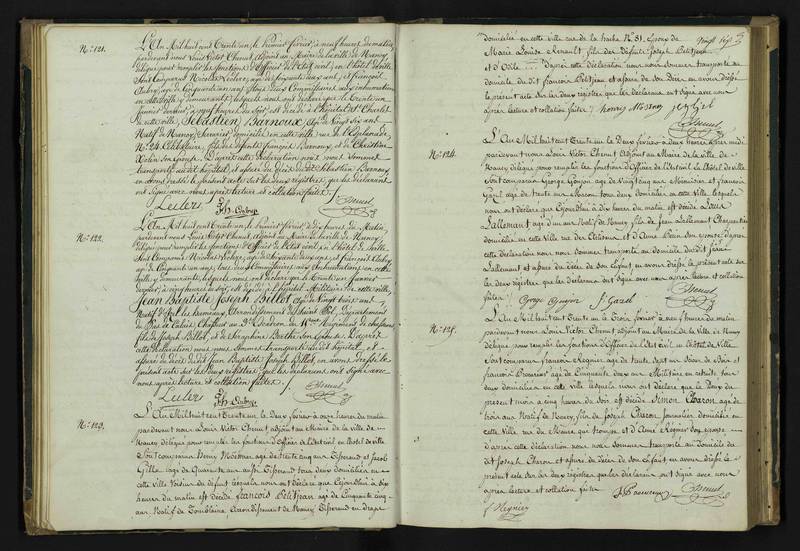 N.º 121.
L'An Mil huit cent Trente un, le premier février, à neuf heures du matin,
pardevant nous Louis Victor Chenut, adjoint au Maire de la ville de Nancy
délégué pour remplir les fonctions d'Officier de l'Etat civil, en l'hôtel de ville
Sont comparus Nicolas Leclerc, agé de soixante ans, et françois
Aubry, agé de Cinquante ans, tous deux Commissaires aux inhumations
en cette ville, y demeurant, lesquels nous ont déclaré que le Trente un
janvier dernier, à heures du soir, est décédé à l'hôpital St Charles
de cette ville, Sébastien Barnoux, agé de Vingt six ans
Natif de Nancy, domicilié en cette ville rue de l'Esplanade
N.º 24, Célibataire, fils de défunts françois Barnoux, et de Christine
son épouse. D'après cette déclaration nous nous sommes
transporté audit hôpital, et assuré du décès dudit Sébastien Barnoux
en avons dressé le présent acte sur les deux registres, que les déclarants
ont signé avec nous après lecture et collation faites.
Leclerc
fçs Aubry
Chenut
N.º 122.
L'An Mil huit cent Trente un, le premier février, à dix heures du Matin,
pardevant nous Louis Victor Chenut, adjoint au Maire de la ville de Nancy
délégué pour remplir les fonctions d'Officier de l'Etat civil, en l'hôtel de ville,
Sont Comparus Nicolas Leclerc, agé de soixante ans, et françois Aubry,
agé de Cinquante ans, tous deux Commissaires aux Inhumations en cette
ville, y demeurant, lesquels nous ont déclaré que le Trente un janvier
dernier, à cinq heures du soir, est décédé à l'hôpital Militaire de cette ville,
Jean Baptiste Joseph Billot, agé de Vingt trois ans,
Natif d' Arrondissement de Saint Pol, Département
du Pas de Calais, Chasseur au 3.e Escadron du Régiment de chasseurs
fils de Joseph Billot, et de Séraphine Berthe son Epouse. D'après
cette déclaration nous nous sommes transporté audit hôpital, et
assuré du décès dudit Jean Baptiste Joseph Billot, en avons dressé le
présent acte sur les deux registres que les déclarants ont signé avec
nous après lecture et collation faites. /.
Leclerc
fçs Aubry
Chenut
N.º 123.
L'An Mil huit cent Trente un le Deux février à onze heures du matin
pardevant nous Louis Victor Chenut, adjoint au Maire de la ville de
Nancy délégué pour remplir les fonctions d'Officier de l'Etat civil en l'hôtel de ville
Sont comparus Henry agé de trente cinq ans Tisserand et Jacob
agé de Quarante ans aussi Tisserand tous deux domiciliés en
cette ville Voisins du défunt lesquels nous ont déclaré que Cejourd'hui à dix
heures du matin est décédé françois Petitjean agé de Cinquante cinq
ans Natif de Tomblaine Arrondissement de Nancy Tisserand
domicilié en cette ville rue de la hache N.º 31. Epoux de
Marie Louise Renault fils des défunts Joseph Petitjean
et d'Odile D'après cette déclaration nous nous sommes transporté au
domicile dudit françois Petitjean et assuré de son Décès en avons dressé
le présent acte sur les deux registres que les déclarants ont signé avec nous
après lecture et collation faites /.
Chenut
N.º 124.
L'An Mil huit cent Trente un le Deux février à deux heures après midi
pardevant nous Louis Victor Chenut Adjoint au Maire de la ville de
Nancy délégué pour remplir les fonctions d'Officier de l'Etat civil en l'hôtel de ville
Sont comparus George agé de Vingt cinq ans Menuisier et françois
agé de trente ans Maçon tous deux domiciliés en cette ville, lesquels
nous ont déclaré que Cejourd'hui à dix heures du matin est décédé Louis
Lallemant agé d'un an Natif de Nancy fils de Jean Lallemant Charpentier
domicilié en cette ville rue des Artisans, et d'Anne son épouse, d'après
cette déclaration nous nous sommes transporté au domicile dudit
Lallemant et assuré du décès de son Enfant, en avons dressé le présent acte sur
les deux registres que les déclarants ont signé avec nous après lecture et collation
faites /.
Chenut
N.º 125.
L'An Mil huit cent Trente un le Trois février à neuf heures du matin
pardevant nous Louis Victor Chenut, adjoint au Maire de la ville de Nancy
délégué pour remplir les fonctions d'Officier de l'Etat civil en l'hôtel de Ville
Sont comparus françois Regnier agé de trente sept ans Scieur de Bois et
françois agé de Cinquante deux ans Militaire en retraite tous
deux domiciliés en cette ville lesquels nous ont déclaré que le Deux du
présent mois à cinq heures du soir est décédé Simon Charon agé de
trois ans Natif de Nancy, fils de Joseph Charon Journalier domicilié en
cette ville rue du Maure qui trompe et d'Anne Regnier son épouse
d'après cette déclaration nous nous sommes transporté au Domicile du
dit Joseph Charon et assuré du décès de son Enfant, en avons dressé le
présent acte sur les deux registres que les déclarants ont signé avec nous
après lecture et collation faites
Chenut
f Regnier